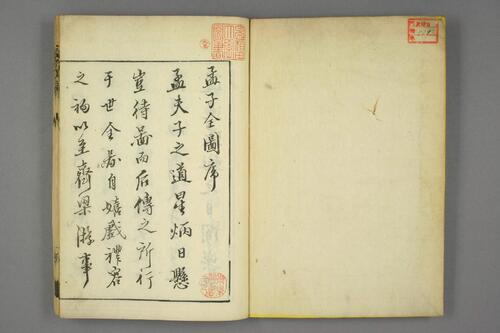 孟子全圖序
孟夫子之道星炳日懸
豈待圖而后傳之所行
于世全圖自嬉戲禮容
之初以至齊梁游事